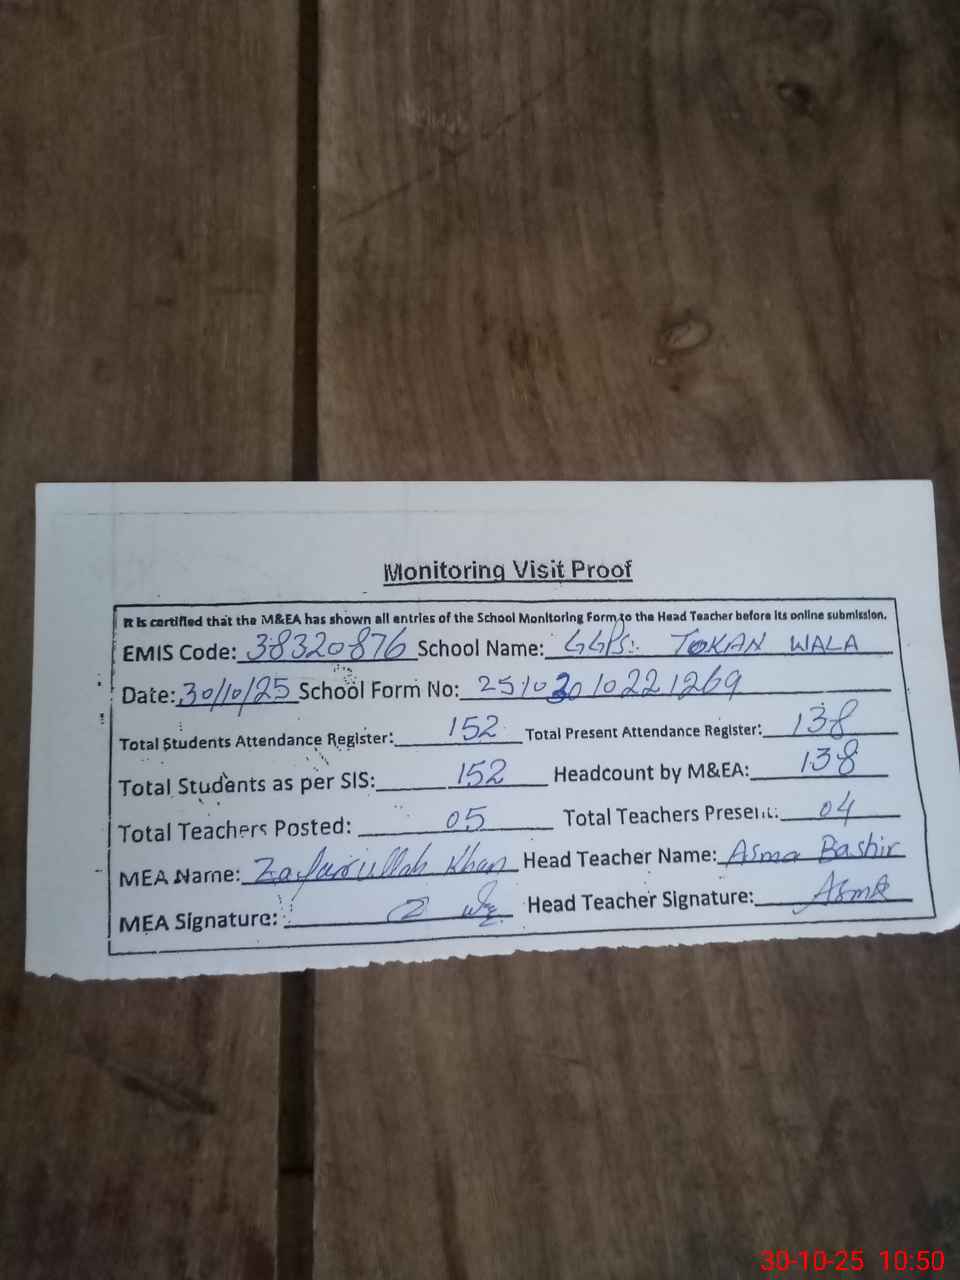 Monitoring Visit Proof
It is certified that the M&EA has shown all entries of the School Monitoring Form to the Head Teacher before its online submission.
EMIS Code: 38320876 School Name: GGPS. TOKAN WALA
Date: 30/10/25 School Form No: 25103010221269
Total Students Attendance Register: 152 Total Present Attendance Register: 138
Total Students as per SIS: 152 Headcount by M&EA: 138
Total Teachers Posted: 05 Total Teachers Present: 04
MEA Name: Zafarullah Khan Head Teacher Name: Asma Bashir
MEA Signature: Head Teacher Signature: Asma
30-10-25 10:50